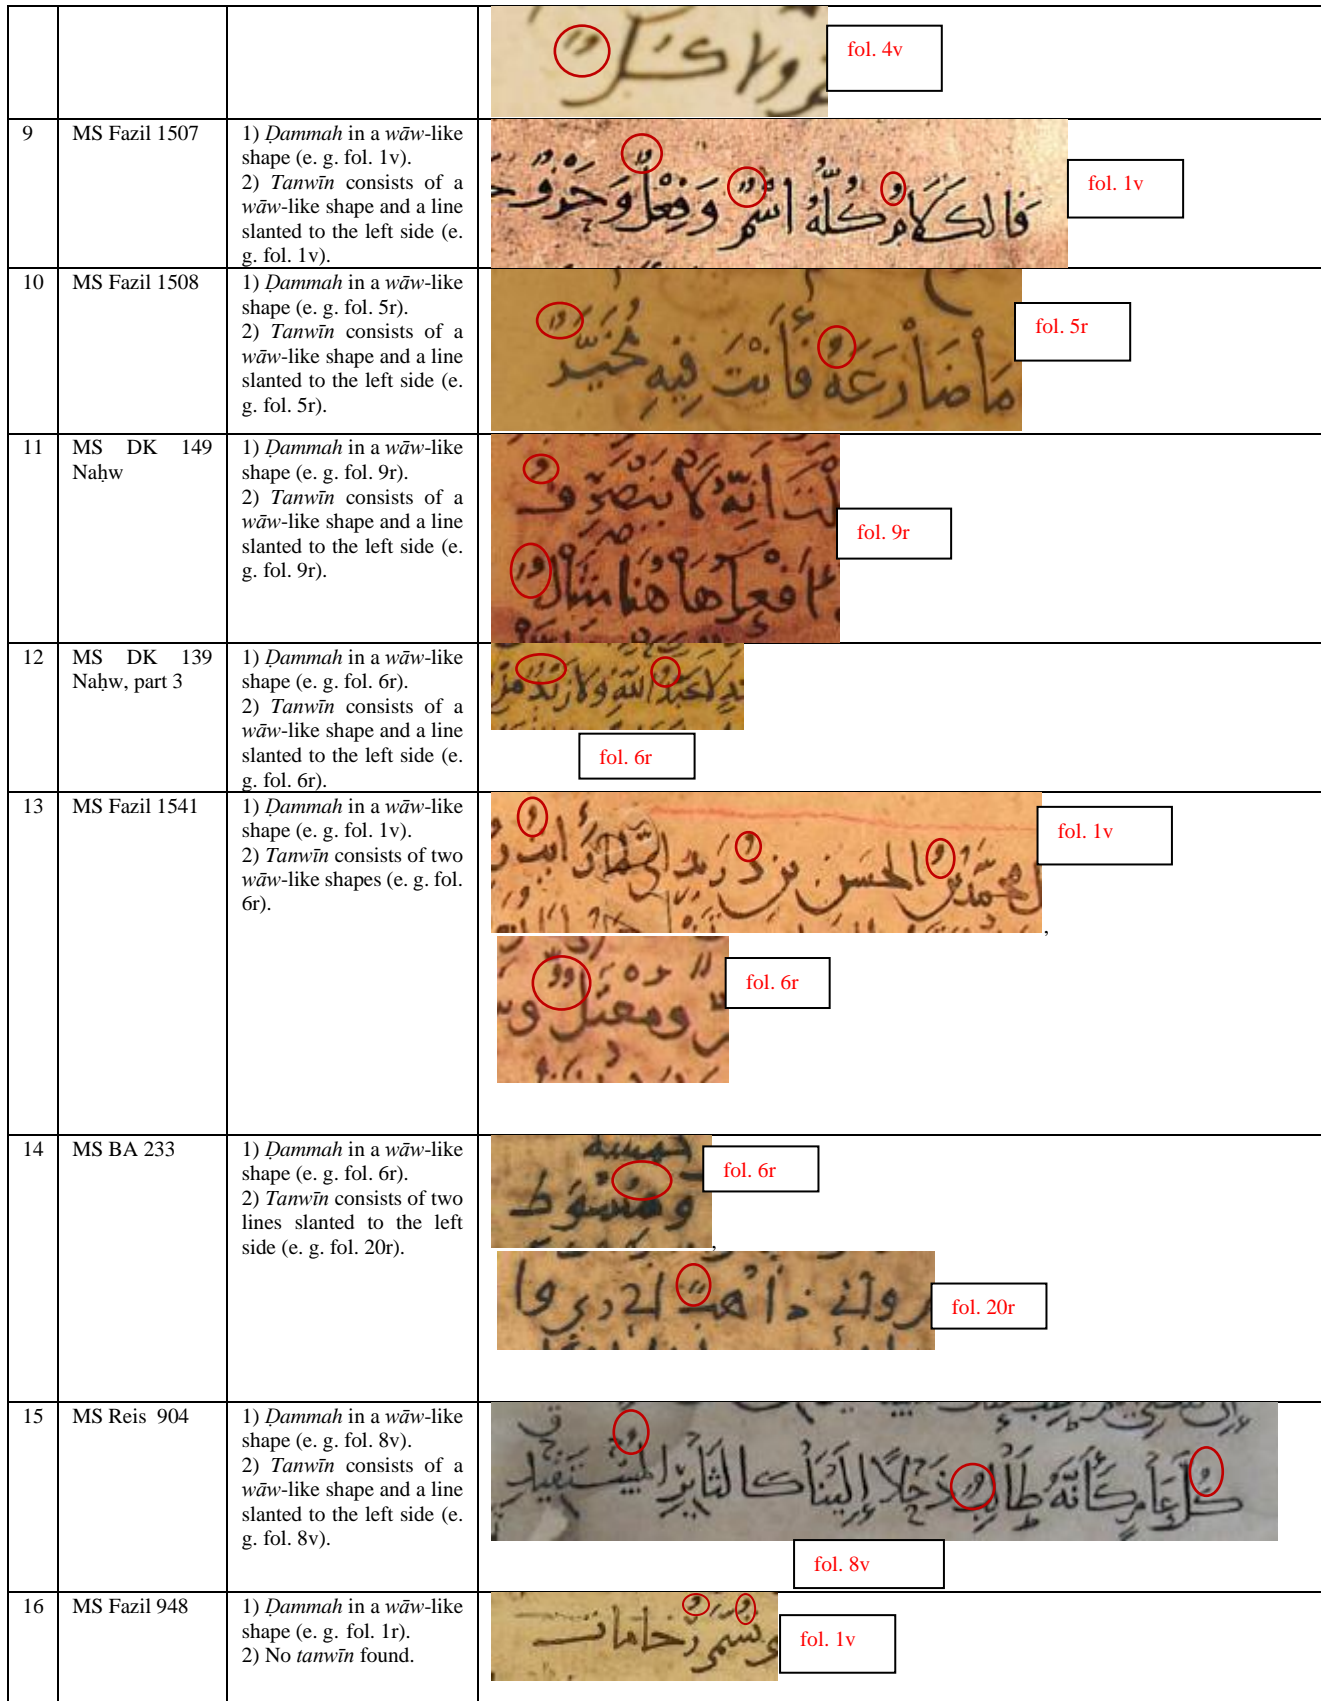 fol. 4v
9
MS Fazil 1507
1) Ḍammah in a wāw-like
shape (e. g. fol. 1v).
2) Tanwīn consists of a
wāw-like shape and a line
slanted to the left side (e.
g. fol. 1v).
فَالكَلَامُ كُلُّهُ اسْمٌ وَفِعْلٌ وَحَرْفٌ
fol. 1v
10
MS Fazil 1508
1) Ḍammah in a wāw-like
shape (e. g. fol. 5r).
2) Tanwīn consists of a
wāw-like shape and a line
slanted to the left side (e.
g. fol. 5r).
مَاْضَاْرَعَهُ فَأَنْتَ فِيهِ مُخَيَّرٌ
fol. 5r
11
MS DK 149
Naḥw
1) Ḍammah in a wāw-like
shape (e. g. fol. 9r).
2) Tanwīn consists of a
wāw-like shape and a line
slanted to the left side (e.
g. fol. 9r).
fol. 9r
12
MS DK 139
Naḥw, part 3
1) Ḍammah in a wāw-like
shape (e. g. fol. 6r).
2) Tanwīn consists of a
wāw-like shape and a line
slanted to the left side (e.
g. fol. 6r).
fol. 6r
13
MS Fazil 1541
1) Ḍammah in a wāw-like
shape (e. g. fol. 1v).
2) Tanwīn consists of two
wāw-like shapes (e. g. fol.
6r).
fol. 1v
,
fol. 6r
14
MS BA 233
1) Ḍammah in a wāw-like
shape (e. g. fol. 6r).
2) Tanwīn consists of two
lines slanted to the left
side (e. g. fol. 20r).
fol. 6r
,
fol. 20r
15
MS Reis 904
1) Ḍammah in a wāw-like
shape (e. g. fol. 8v).
2) Tanwīn consists of a
wāw-like shape and a line
slanted to the left side (e.
g. fol. 8v).
fol. 8v
16
MS Fazil 948
1) Ḍammah in a wāw-like
shape (e. g. fol. 1r).
2) No tanwīn found.
fol. 1v